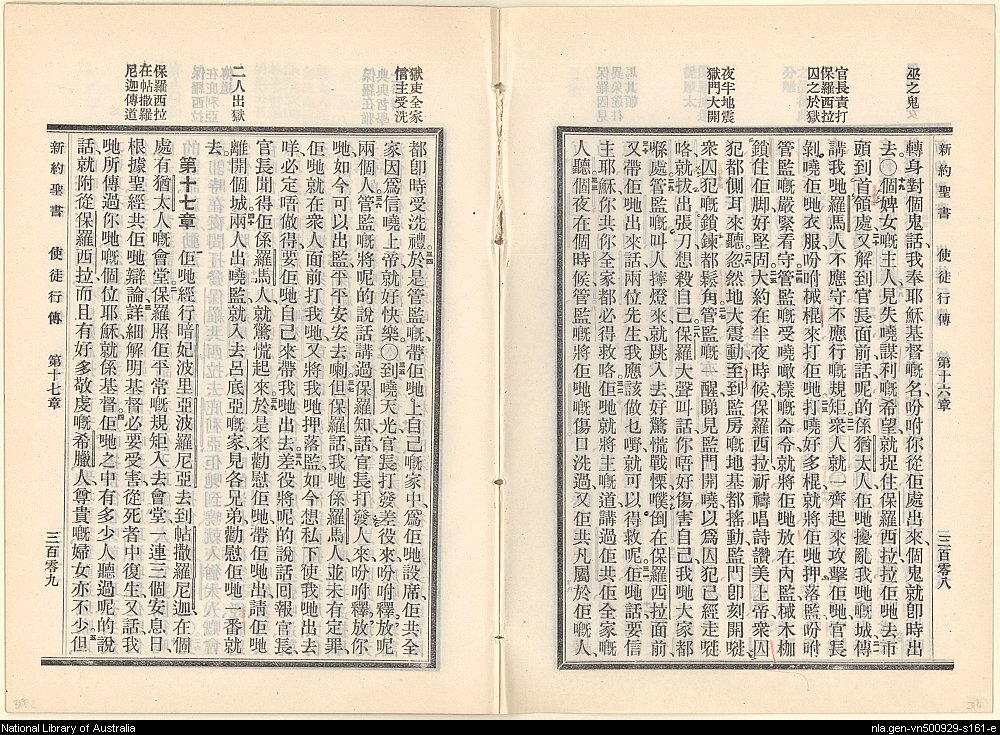 巫之鬼
官長責打
保羅西拉
囚之於獄
夜半地震
獄門大開
新約聖書 使徒行傳 第十六章 三百零八
轉身對個鬼話、我奉耶穌基督嘅名、吩咐你從佢處出來、個鬼就卽時出
去。〇個婢女嘅主人、見失曉謀利嘅希望、就捉住保羅西拉、拉佢哋去市
頭到首領處、又解到官長面前話、呢的係猶太人、佢哋擾亂我哋嘅城、傳
講我哋羅馬人不應守不應行嘅規矩、衆人就一齊起來攻擊佢哋、官長
剝曉佢哋衣服、吩咐械棍來打佢哋、打曉好多棍、就將佢哋押落監、吩咐
管監嘅嚴緊看守、管監嘅受曉噉樣嘅命令、就將佢哋放在內監、械木枷
鎖住佢脚好堅固、大約在半夜時候、保羅西拉祈禱、唱詩讚美上帝、衆囚
犯都側耳來聽、忽然地大震動、至到監房嘅地基都搖動、監門卽刻開嗮、
衆囚犯嘅鎖鍊都鬆角、管監嘅一醒、睇見監門開曉、以爲囚犯已經走嗮
咯、就拔出張刀想殺自己、保羅大聲叫話、你唔好傷害自己、我哋大家都
喺處、管監嘅叫人擰燈來、就跳入去、好驚慌戰慄、㒒倒在保羅西拉面前、
又帶佢哋出來、話兩位先生、我應該做乜野、就可以得救呢、佢哋話、要信
主耶穌、你共你全家都必得救咯、佢哋就將主嘅道、講過佢共佢全家嘅
人聽、個夜在個時候、管監嘅將佢哋嘅傷口洗過、又佢共凡屬於佢嘅人、
獄吏全家
信主受洗
二人出獄
保羅西拉
在帖撒羅
尼迦傳道
都卽時受洗禮、於是管監嘅、帶佢哋上自己嘅家中、爲佢哋設席、佢共全
家因爲信曉上帝、就好快樂。〇到曉天光、官長打發差役來、吩咐釋放呢
兩個人、管監嘅將呢的說話講過保羅知話、官長打發人來、吩咐釋放你
哋、如今可以出監平平安安去喇、但保羅話、我哋係羅馬人、並未有定罪、
佢哋就在衆人面前打我哋、又將我哋押落監、如今想私下使我哋出去
咩、必定唔做得、要佢哋自己來帶我哋出去、差役將呢的說話回報官長、
官長聞得佢係羅馬人、就驚慌起來、於是來勸慰佢哋、帶佢哋出、請佢哋
離開個城、兩人出曉監、就入去呂底亞嘅家、見各兄弟、勸慰佢哋一番、就
去。
第十七章 佢哋經行暗妃波里亞波羅尼亞、去到帖撒羅尼迦、在個
處有猶太人嘅會堂、保羅照佢平常嘅規矩入去會堂、一連三個安息日、
根據聖經共佢哋辯論、詳細解明基督必要受害、從死者中復生、又話、我
哋所傳過你哋嘅個位耶穌、就係基督、佢哋之中有多少人聽過呢的說
話、就附從保羅西拉、而且有好多敬虔嘅希臘人、尊貴嘅婦女亦不少、但
新約聖書 使徒行傳 第十七章 三百零九
National Library of Australia
nla.gen-vn500929-s161-e